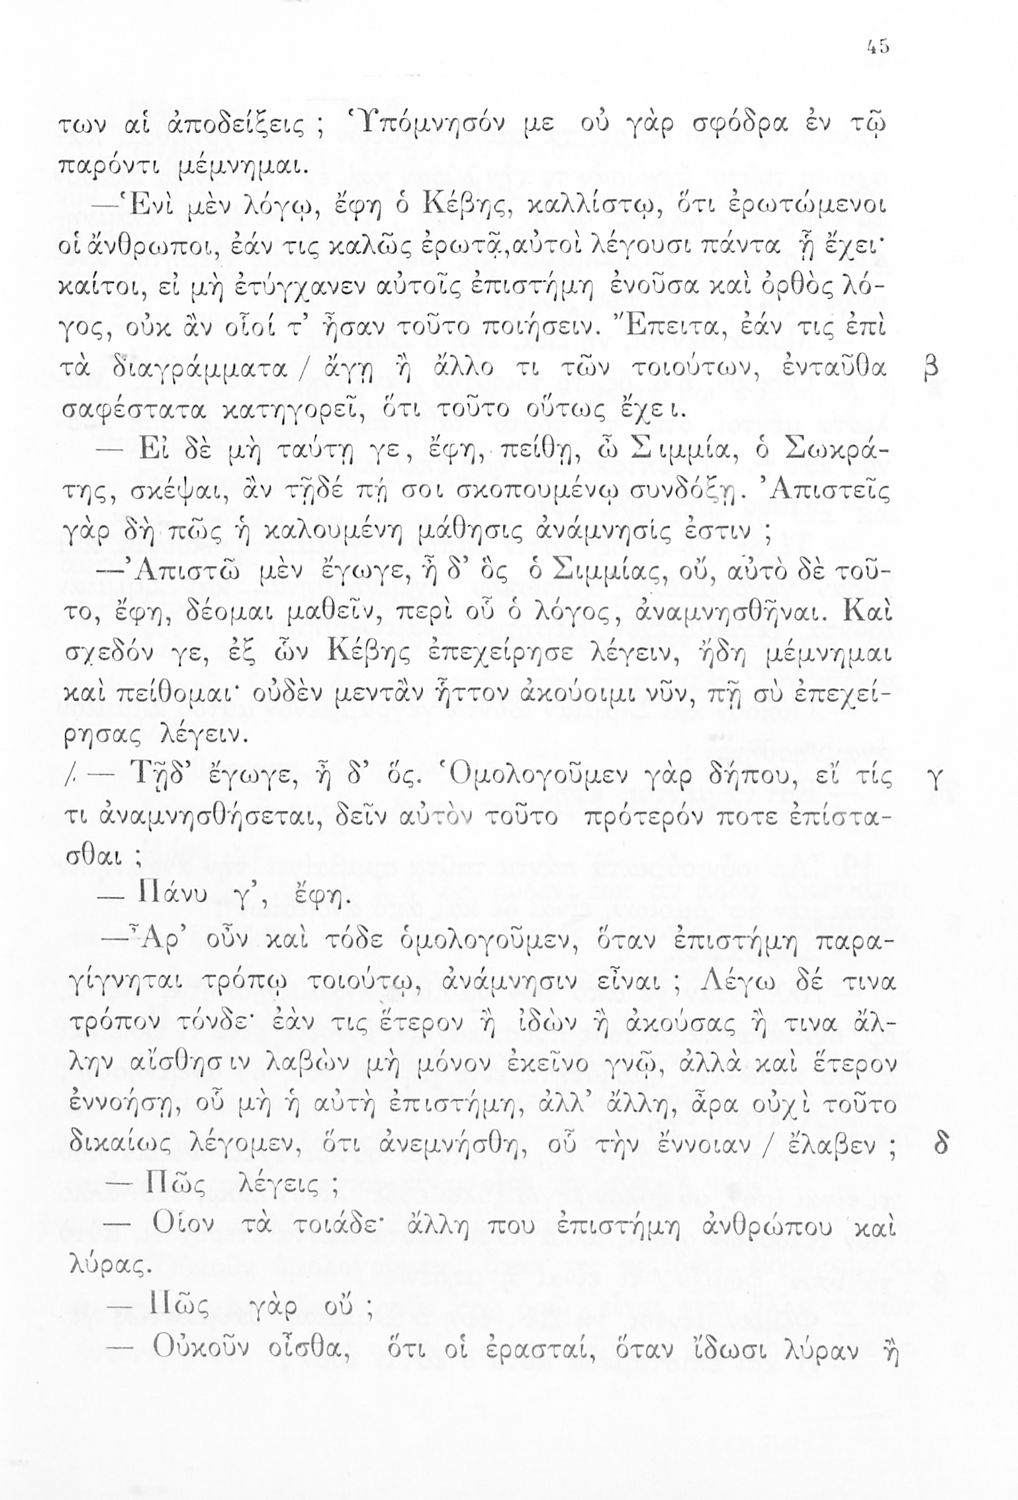 45
των αἱ ἀποδείξεις ; Ὑπόμνησόν με οὐ γὰρ σφόδρα ἐν τῷ
παρόντι μέμνημαι.
—Ἑνὶ μὲν λόγῳ, ἔφη ὁ Κέβης, καλλίστῳ, ὅτι ἐρωτώμενοι
οἱ ἄνθρωποι, ἐάν τις καλῶς ἐρωτᾷ,αὐτοὶ λέγουσι πάντα ᾗ ἔχει·
καίτοι, εἰ μὴ ἐτύγχανεν αὐτοῖς ἐπιστήμη ἐνοῦσα καὶ ὀρθὸς λό-
γος, οὐκ ἂν οἷοί τ’ ἦσαν τοῦτο ποιήσειν. Ἔπειτα, ἐάν τις ἐπὶ
τὰ διαγράμματα / ἄγῃ ἢ ἄλλο τι τῶν τοιούτων, ἐνταῦθα β
σαφέστατα κατηγορεῖ, ὅτι τοῦτο οὕτως ἔχει.
— Εἰ δὲ μὴ ταύτῃ γε, ἔφη, πείθῃ, ὦ Σιμμία, ὁ Σωκρά-
της, σκέψαι, ἂν τῇδέ πῄ σοι σκοπουμένῳ συνδόξῃ. Ἀπιστεῖς
γὰρ δὴ πῶς ἡ καλουμένη μάθησις ἀνάμνησίς ἐστιν ;
—Ἀπιστῶ μὲν ἔγωγε, ἦ δ’ ὃς ὁ Σιμμίας, οὔ, αὐτὸ δὲ τοῦ-
το, ἔφη, δέομαι μαθεῖν, περὶ οὗ ὁ λόγος, ἀναμνησθῆναι. Καὶ
σχεδόν γε, ἐξ ὧν Κέβης ἐπεχείρησε λέγειν, ἤδη μέμνημαι
καὶ πείθομαι· οὐδὲν μεντἂν ἧττον ἀκούοιμι νῦν, πῇ σὺ ἐπεχεί-
ρησας λέγειν.
/. — Τῇδ’ ἔγωγε, ἦ δ’ ὅς. Ὁμολογοῦμεν γὰρ δήπου, εἴ τίς γ
τι ἀναμνησθήσεται, δεῖν αὐτὸν τοῦτο πρότερόν ποτε ἐπίστα-
σθαι ;
— Πάνυ γ’, ἔφη.
—Ἆρ’ οὖν καὶ τόδε ὁμολογοῦμεν, ὅταν ἐπιστήμη παρα-
γίγνηται τρόπῳ τοιούτῳ, ἀνάμνησιν εἶναι ; Λέγω δέ τινα
τρόπον τόνδε· ἐὰν τις ἕτερον ἢ ἰδὼν ἢ ἀκούσας ἤ τινα ἄλ-
λην αἴσθησιν λαβὼν μὴ μόνον ἐκεῖνο γνῷ, ἀλλὰ καὶ ἕτερον
ἐννοήσῃ, οὗ μὴ ἡ αὐτὴ ἐπιστήμη, ἀλλ’ ἄλλη, ἆρα οὐχὶ τοῦτο
δικαίως λέγομεν, ὅτι ἀνεμνήσθη, οὗ τὴν ἔννοιαν / ἔλαβεν ; δ
— Πῶς λέγεις ;
— Οἷον τὰ τοιάδε· ἄλλη που ἐπιστήμη ἀνθρώπου καὶ
λύρας.
— Πῶς γὰρ οὔ ;
— Οὐκοῦν οἶσθα, ὅτι οἱ ἐρασταί, ὅταν ἴδωσι λύραν ἢ